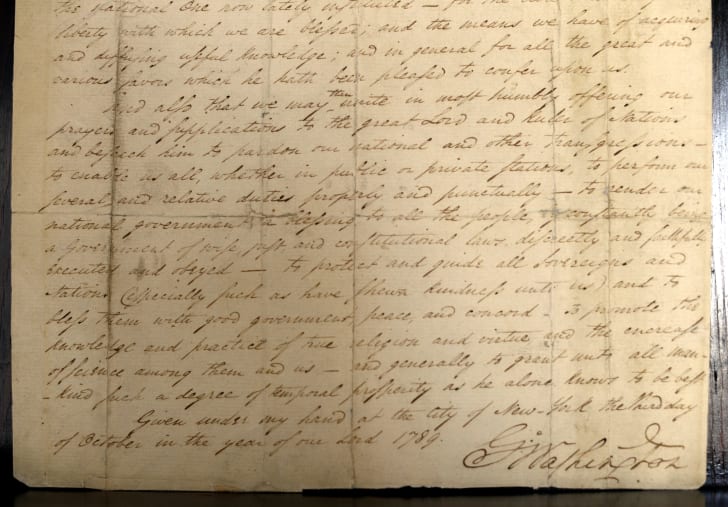 the National One now lately instituted — for the
liberty with which we are blessed; and the means we have of acquiring
and diffusing useful knowledge; and in general for all the great and
various favors which he hath been pleased to confer upon us.
And also that we may then unite in most humbly offering our
prayers and supplications to the great Lord and Ruler of Nations
and beseech him to pardon our national and other transgressions —
to enable us all, whether in public or private stations, to perform our
several and relative duties properly and punctually — to render our
national government a blessing to all the people, by constantly being
a Government of wise, just and constitutional laws, discreetly and faithfully
executed and obeyed — to protect and guide all Sovereigns and
Nations (especially such as have shewn kindness unto us) and to
bless them with good government, peace, and concord — To promote the
knowledge and practice of true religion and virtue, and the encrease
of science among them and us — and generally to grant unto all man-
-kind such a degree of temporal prosperity as he alone knows to be best
Given under my hand at the city of New-York the third day
of October in the year of our Lord 1789.
G:Washington